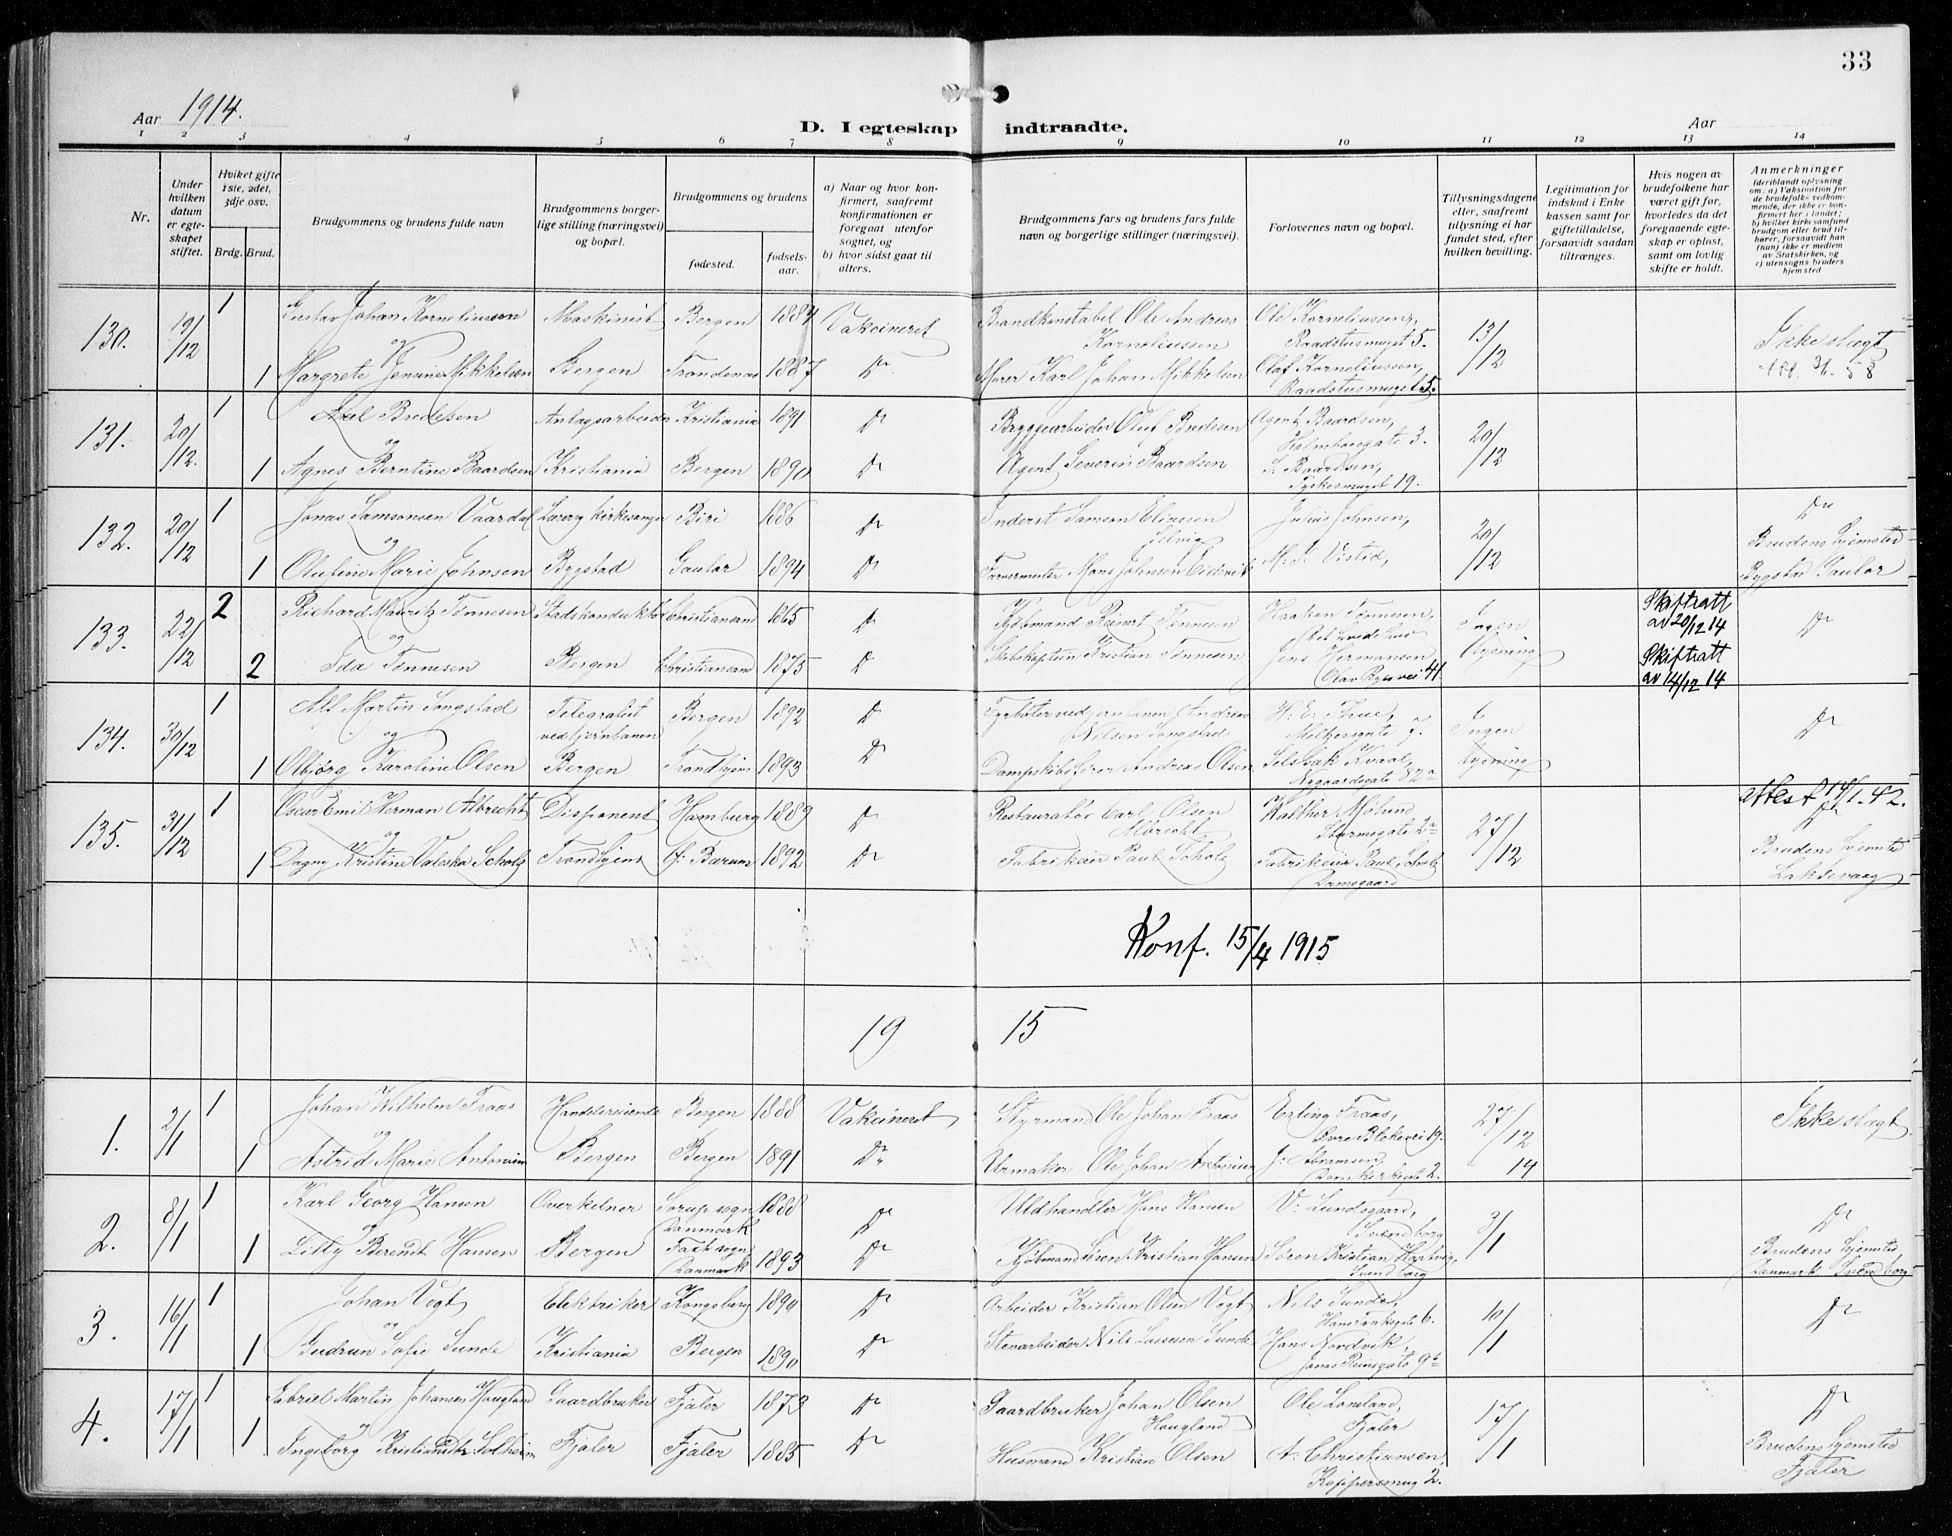 33
Aar 1914.
D. I egteskap indtraadte.
Aar
1 2 3 4 5 6 7 8 9 10 11 12 13 14
Nr.
Under hvilken datum er egteskapet stiftet.
Hviket gifte 1ste, 2det, 3dje osv.
Brdg. Brud.
Brudgommens og brudens fulde navn
Brudgommens borgerlige stilling (næringsvei) og bopæl.
Brudgommens og brudens
fødested.
fødselsaar.
a) Naar og hvor konfirmert, saafremt konfirmationen er foregaat utenfor sognet, og
b) hvor sidst gaat til alters.
Brudgommens fars og brudens fars fulde navn og borgerlige stillinger (næringsvei).
Forlovernes navn og bopæl.
Tillysningsdagene eller, saafremt tillysning ei har fundet sted, efter hvilken bevilling.
Legitimation for indskud i Enkekassen samt for giftetilladelse, forsaavidt saadan tiltrænges.
Hvis nogen av brudefolkene har været gift før, hvorledes da det foregaaende egteskap er opløst, samt om lovlig skifte er holdt.
Anmerkninger
(deriblandt oplysning om: a) Vaksination for de brudefolks vedkommende, der ikke er konfirmert her i landet; b) hvilket kirkesamfund brudgom eller brud tilhører, forsaavidt han (hun) ikke er medlem av Statskirken, og c) utensogns bruders hjemsted
130. 19/12 1 Gustav Johan Korneliussen Maskinist Bergen 1884 Vakcineret Brandkonstabel Ole Andreas Korneliussen Ole Korneliussen, Raadstusmuget 5. 13/12 Ikke slægt
og
1 Margrete Jensine Mikkelsen Bergen Trondenas 1887 Do Murer Karl Johan Mikkelsen Olaf Korneliussen, Raadstusmuget 5.
131. 20/12. 1 Axel Bredesen Anlægsarbeider Kristiania 1891 Do Bryggearbeider Oluf Bredesen Agent Baardsen, Holmboesgate 3. 20/12
og
1 Agnes Berntine Baardsen Kristiania Bergen 1890 Do Agent Severin Baardsen S. Baardsen, Tyskesmuget 19.
132. 20/12 1 Jonas Samsonsen Vaardal Lærer og kirkesanger Biri 1886 Do Inderst Samson Eliassen Selvig Julius Johnsen, 20/12 Do
og
1 Olufine Marie Johnsen Bygstad Gaular 1894 Do Farvermester Mons Johnsen Eidevik M. J. Vistid, Brudens hjemsted Bygstad Gaular
133. 22/12 2 Richard Mauritz Tønnesen Stadskonduktør Christiansand 1865 Do Kjøbmand Reinert Tønnesen Haakon Tønnesen, Ingen Skiftratt av 20/12 14 Do
og
2 Ida Tønnesen Bergen Christiansand 1875 Do Skibskaptein Kristian Tønnesen Jens Hermansen Olav Ryes vei 41. lysning Skiftratt av 14/12 14
134. 30/12 1 Alf Martin Songstad Telegrafist ved jernbanen Bergen 1892 Do Fyrbøter ved jernbanen Andreas Nilsen Songstad H. E. Thue, Meltzersgate 7. Ingen Do
og
1 Olbjørg Karoline Olsen Bergen Trondhjem 1893 Do Dampskibsfører Andreas Olsen Selstak Kvaal, Nygaardsgate 82a lysning
135. 31/12 1 Oscar Emil Herman Albrecht Disponent Hamburg 1889 Do Restauratør Carl Olsen Albrecht Walther Mølund, Stormsgate 2a 27/12 attest 14/1.42. Do
og
1 Dagny Kristine Valeska Scholz Trondhjem Ø. Bærum 1892 Do Fabrikeier Paul Scholz Fabrikeier Paul Scholz Damsgaard Brudens hjemsted Laksevaag
Konf. 15/4 1915
19 15
1. 2/1 1 Johan Wilhelm Fraas Handelsreisende Bergen 1888 Vakcineret Styrmand Ole Johan Fraas Erling Fraas, Øvre Blekevei 19. 27/12 14 Ikke slægt
og
1 Astrid Marie Antonisen Bergen Bergen 1891 Do Urmaker Ole Johan Antonisen J. Abramsen, Domkirkegate 2.
2. 8/1 1 Karl Georg Hansen Overkelner Sorup sogn Danmark 1888 Do Uldhandler Hans Hansen V. Lundsgaard, Svendborg 3/1 Do
og
1 Lilly Berendt Hansen Bergen Faxh sogn Danmark 1893 Do Kjøbmand Søren Kristian Hansen Søren Kristian Hartvig, Svendborg Brudens hjemsted Danmark Svendborg
3. 16/1 1 Johan Vogt Elektriker Kongsberg 1890 Do Arbeider Kristian Olsen Vogt Nils Sunde, Hans Tanksgate 6. 10/1 Do
og
1 Gudrun Sofie Sunde Kristiania Bergen 1890 Do Stenarbeider Nils Lassesen Sunde Hans Nordvik, Jonas Reinsgate 9b
4. 17/1 1 Gabriel Martin Johansen Haugland Gaardbruker Fjaler 1873 Do Gaardbruker Johan Olsen Haugland Ole Loneland, Fjaler 17/1 Do
og
1 Ingeborg Kristiandtr. Solheim Fjaler Fjaler 1885 Do Husmand Kristian Olsen A. Christiansen, Koppersmug 2. Brudens hjemsted Fjaler